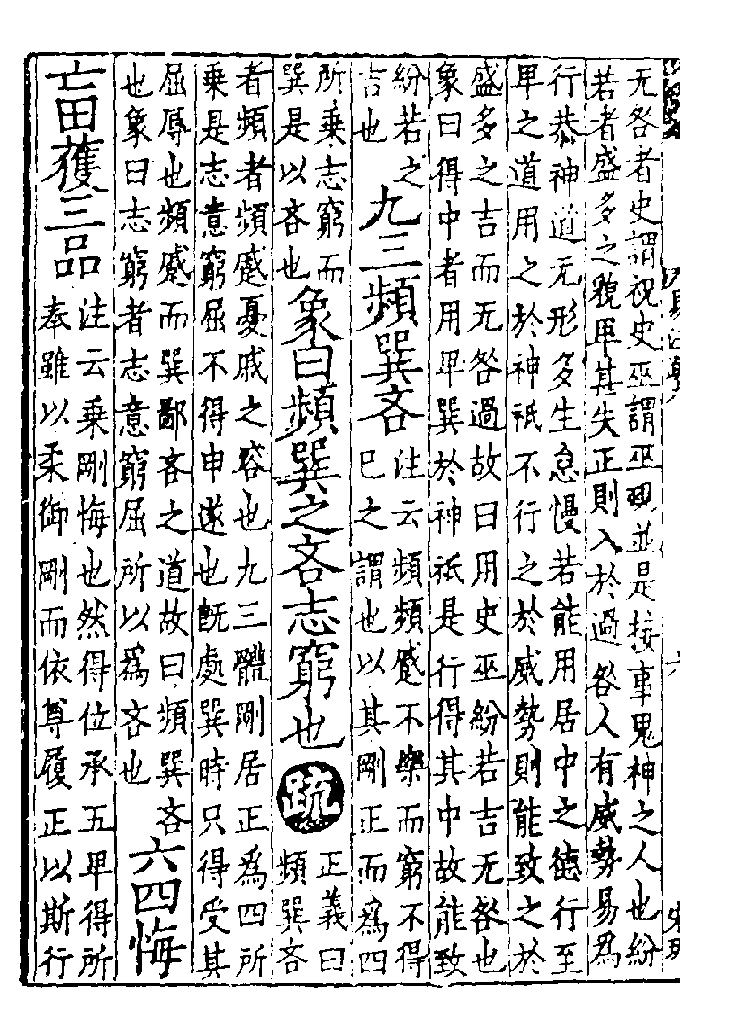 无咎者史謂祝史巫謂巫覡並是接事鬼神之人也紛
若者盛多之貌卑甚失正則入於過咎人有威勢易爲
行恭神道无形多生怠慢若能用居中之德行至
卑之道用之於神祇不行之於威勢則能致之於
盛多之吉而无咎過故曰用史巫紛若吉无咎也
象曰得中者用卑巽於神祇是行得其中故能致
紛若之
吉也
九三頻巽吝
注云頻頻蹙不樂而窮不得
巳之謂也以其剛正而爲四
所乗志窮而
巽是以吝也
象曰頻巽之吝志窮也
疏
正義曰
頻巽吝
者頻者頻蹙憂戚之容也九三體剛居正爲四所
乗是志意窮屈不得申遂也旣處巽時只得受其
屈辱也頻蹙而巽鄙吝之道故曰頻巽吝
也象曰志窮者志意窮屈所以爲吝也
六四悔
亡田獲三品
注云乗剛悔也然得位承五卑得所
奉雖以柔御剛而依尊履正以斯行